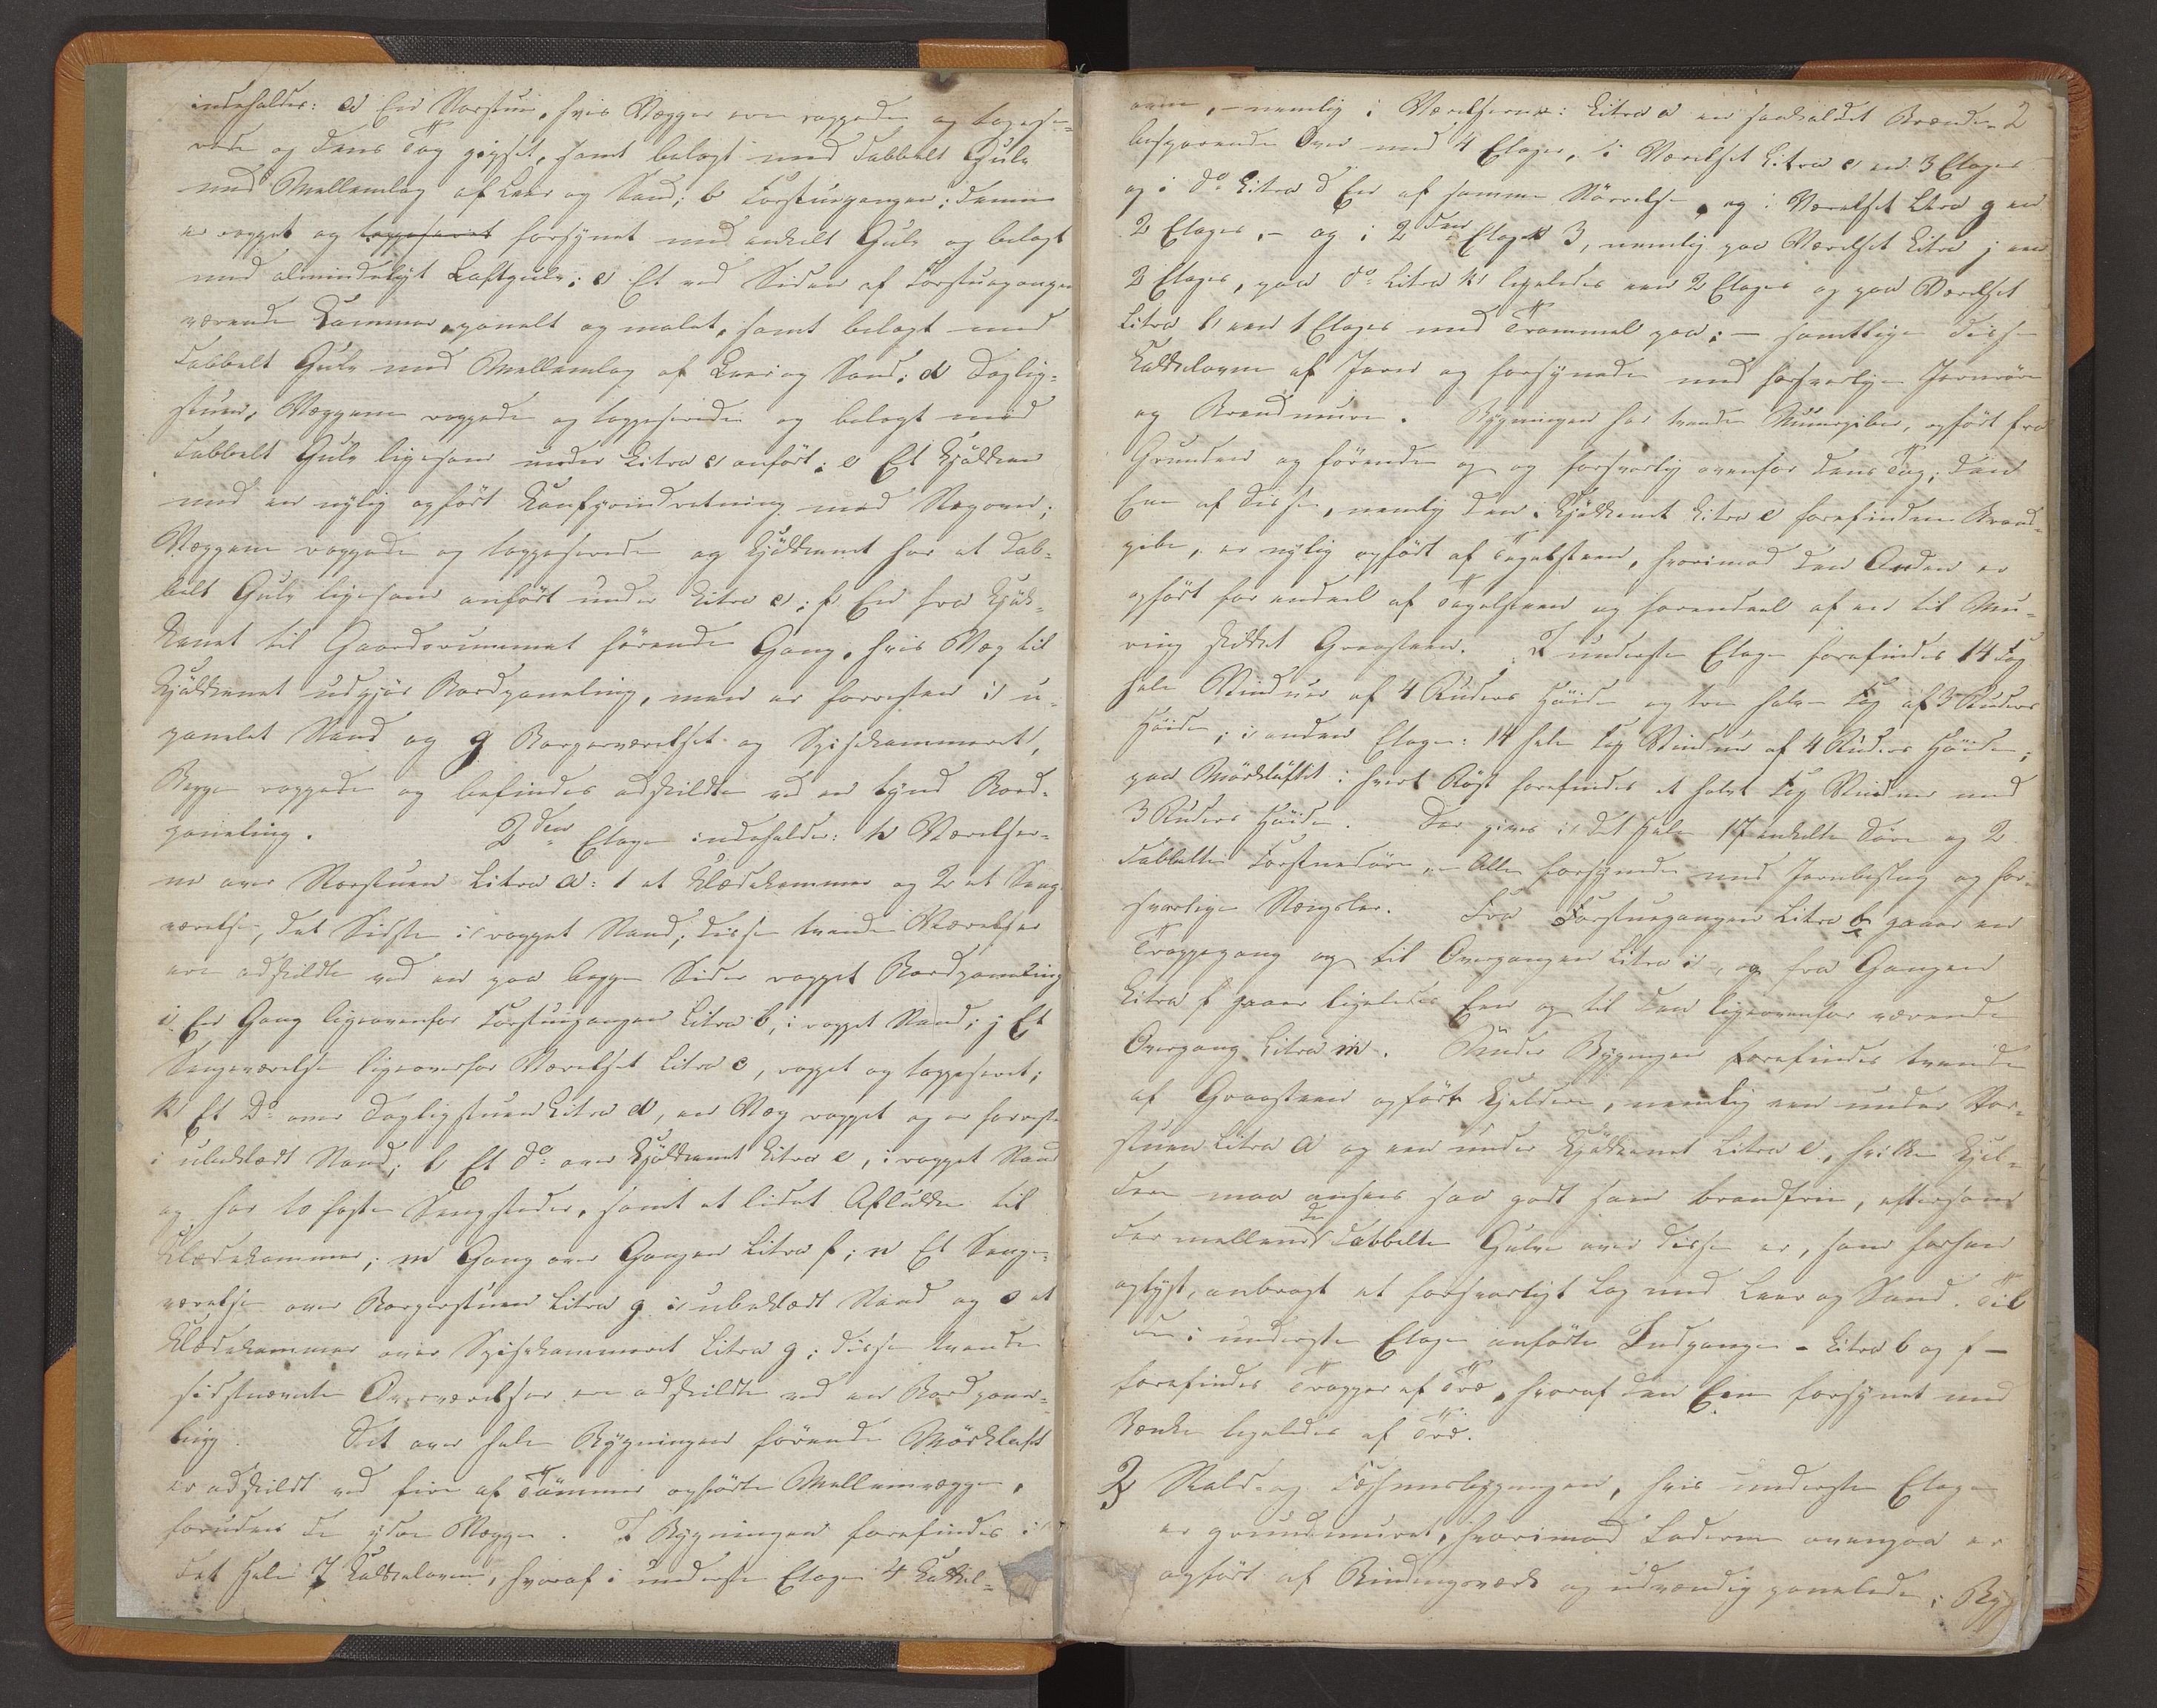 indeholder: a En Storstue, hvis Vægge ere rappede og tapese-
rede og dens Tag gipset, samt belagt med dobbelt Gulv
med Mellemlag af Leer og Sand; b Forstuegangen; denne
er rappet og tappeseret forsynet med enkelt Gulv og belagt
med almindeligt Loftgulv; c Et ved Siden af Forstuegangen
værende Kammer, panelt og malet, samt belagt med
dobbelt Gulv med Mellemlag af Leer og Sand; d Daglig-
stuen, Væggene rappede og tappeserede og belagt med
dobbelt Gulv ligesom under Litra c anført; e Et Kjøkken
med en nylig opført Komfyrindretning med Stegovn;
Væggene rappede og tappeserede og Kjøkkenet har et dob-
belt Gulv ligesom anført under Litra c; f En fra Kjøk-
kenet til Gaardsrummet førende Gang, hvis Væg til
Kjøkkenet udgjør Bordpaneling, men er forresten i u-
panelet Stand og g Borgerværelset og Spisekammeret,
Begge rappede og befindes adskildte ved en tynd Bord-
paneling. 2den Etage indeholder: h Værelser-
ne over Storstuen Litra a: 1 et Klædekammer og 2 et Senge-
værelse, det Sidste i rappet Stand; disse tvende Værelser
ere adskildte ved en paa begge Sider rappet Bordpaneling
i En Gang ligeovenfor Forstuegangen Litra b, i rappet Stand; j Et
Sengeværelse ligeoverfor Værelset Litra c, rappet og tappeseret;
k Et Do over Dagligstuen Litra d, en Væg rappet og er forresten
i ubeklædt Stand; l Et do over Kjøkkenet Litra e, i rappet Stand
og har to faste Sengesteder, samt et lidet Aflukke til
Klædekammer; m Gang over Gangen Litra f; n Et Senge-
værelse over Borgerstuen Litra g i ubeklædt Stand og o et
Klædekammer over Spisekammeret Litra g; disse tvende
sidstnævnte Overværelser ere adskildte ved en Bordpane-
ling. Det over hele Bygningen førende Mørkloft
er adskildt ved fire af Tømmer opførte Mellemvægge,
foruden de ydre Vægge. I Bygningen forefindes i
det Hele 7 Kakkelovne, hvoraf i underste Etage 4 Kakkel-
ovne, – nemlig i Værelserne: Litra a en saakaldet Brænde- 2
besparende Ovn med 4 Etager, i Værelset Litra c en 3 Etages
og i do Litra d En af samme Størrelse, og i Værelset Litra g en
2 Etages, – og i 2den Etage 3, nemlig paa Værelset Litra j en
2 Etages, paa do Litra k ligeledes een 2 Etages og paa Værelset
Litra l een 1 Etages med Trommel paa; – samtlige disse
Kakkelovne af Jern og forsynede med forsvarlige Jernrør
og Brandmure. Bygningen har tvende Muurpiber, opført fra
Grunden og førende op og forsvarlig ovenfor dens Tag; den
Ene af disse, nemlig den i Kjøkkenet Litra e forefindne Brand-
pibe, er nylig opført af Tegelsteen, hvorimod den Anden er
opført for endeel af Tegelsteen og forendeel af en til Mu-
ring skikket Graasteen. I underste Etage forefindes 14 Fag
hele Vinduer af 4 Ruders Høide og tre halve Fag af 3 Ruders
Høide; i anden Etage: 14 hele Fag Vinduer af 4 Ruders Høide;
paa Mørkloftet i hvert Røst forefindes et halvt Fag Vinduer med
3 Ruders Høide. Der gives i det Hele 17 enkelte Døre og 2
dobbelte Forstuedøre, – Alle forsynede med Jernbeslag og for-
svarlige Stængsler. Fra Forstuegangen Litra b gaaer en
Trappegang op til Overgangen Litra i, og fra Gangen
Litra f gaaer ligeledes Een op til den ligeovenfor værende
Overgang Litra m. Under Bygningen forefindes tvende
af Graasteen opført Kjeldere, nemlig een under Stor-
stuen Litra a og een under Kjøkkenet Litra e, hvilke Kjel-
dre maa ansees saa godt som brandfrie, eftersom
der mellem de dobbelte Gulve over disse er, som forhen
oplyst, anbragt et forsvarligt Lag med Leer og Sand. Til
de i underste Etage anførte Indgange – Litra b og f –
forefindes Trapper af Træ, hvoraf den Ene forsynet med
Bænke ligeledes af Træ.
2 Stald- og Fæhuusbygningen, hvis underste Etage
er grundmuret, hvorimod Laderne ovenpaa er
opført af Bindingsværk og udvendig panelede; Byg